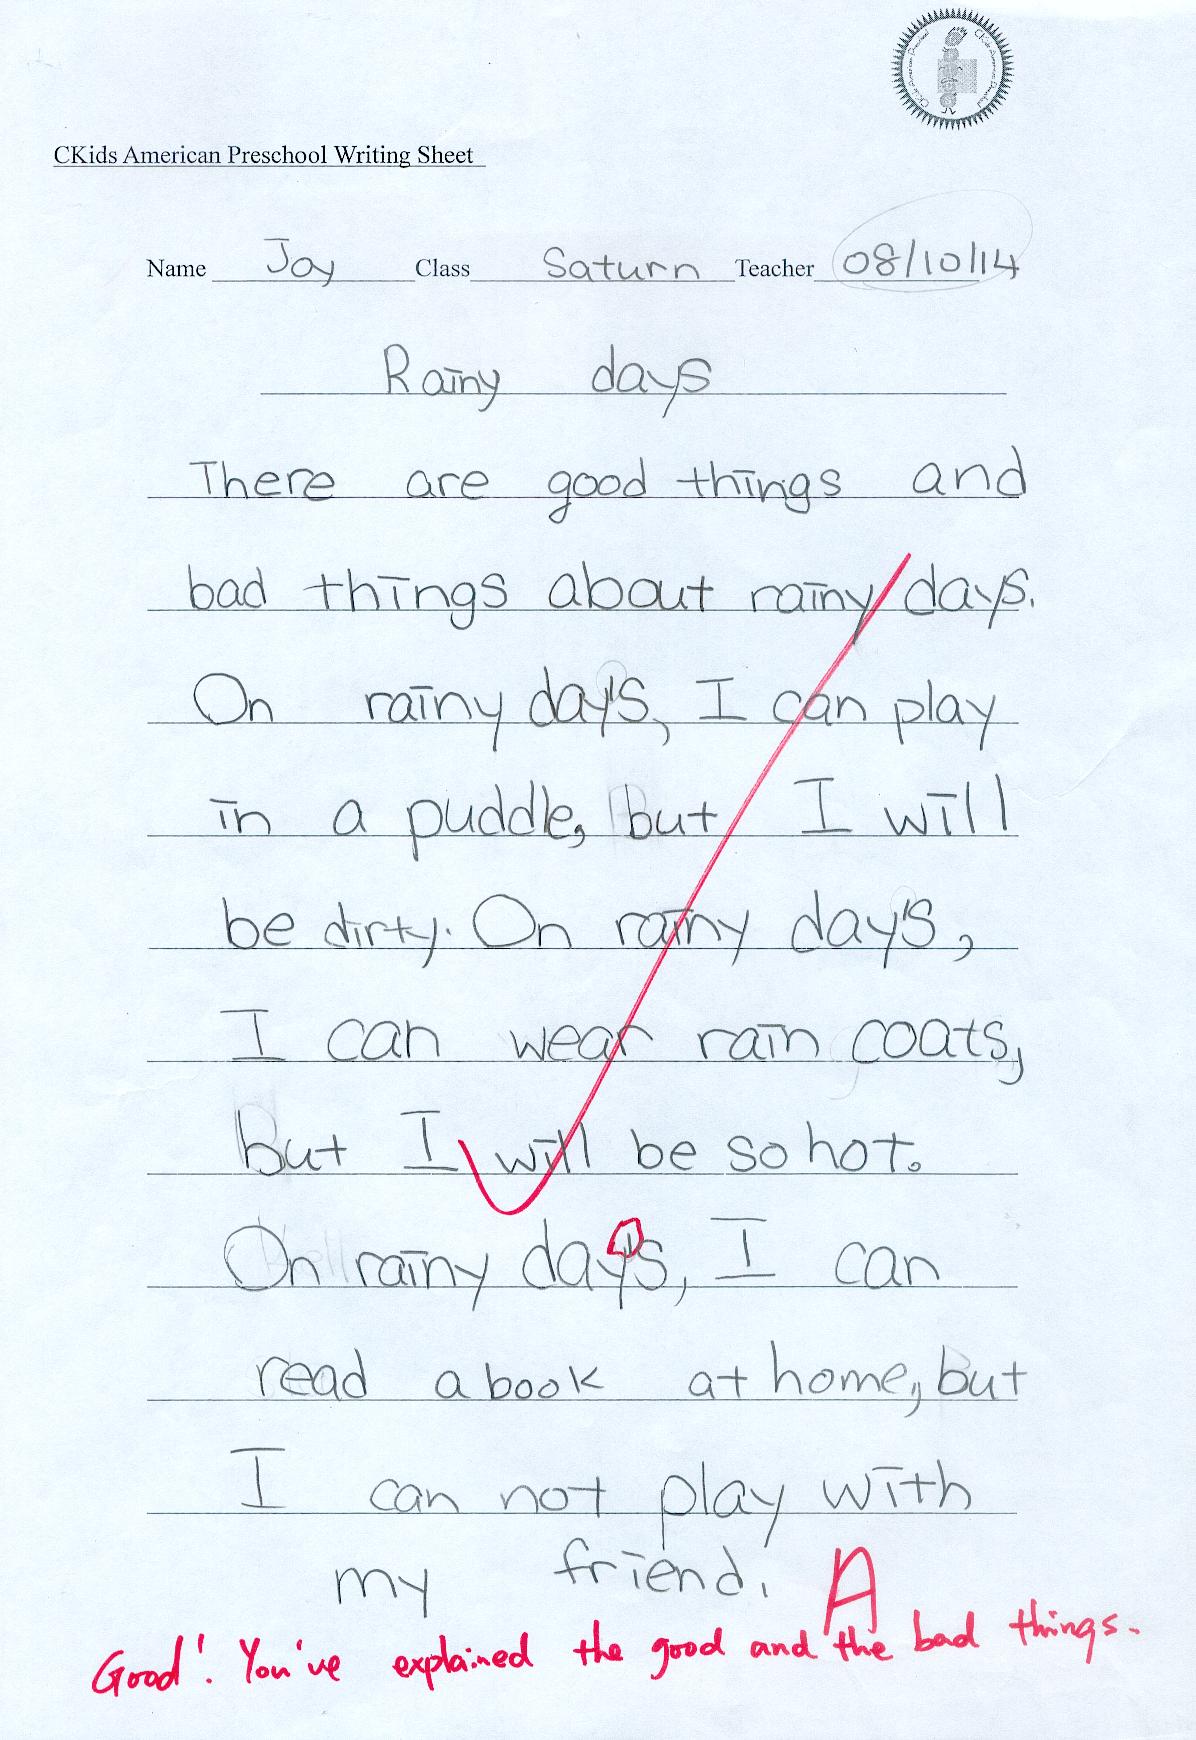 CKids American Preschool Writing Sheet
Name Joy Class Saturn Teacher 08/10/14
Rainy days
There are good things and
bad things about rainy days.
On rainy day's, I can play
in a puddle, but I will
be dirty. On rainy day's,
I can wear rain coats,
but I will be so hot.
On rainy day's, I can
read a book at home, but
I can not play with
my friend.
A
Good! You've explained the good and the bad things.